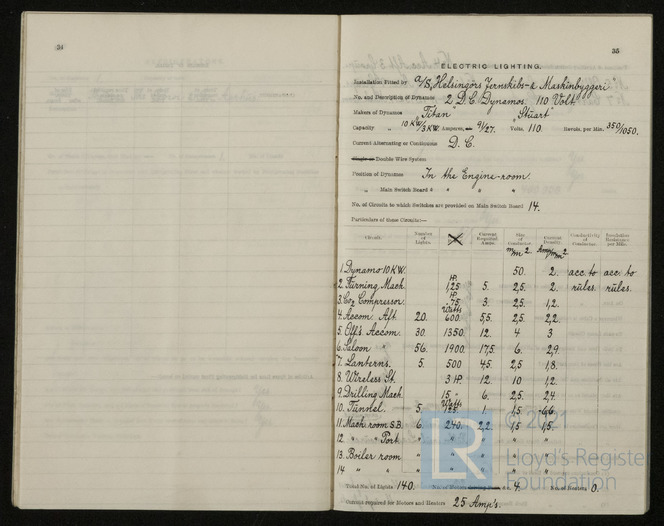 34
35
ELECTRIC LIGHTING.
Installation Fitted by A/S, Helsingörs Jernskibs- & Maskinbyggeri"
No. and Description of Dynamos 2 D.C. Dynamos. 110 Volt.
Makers of Dynamos "Titan" "Stuart"
Capacity " 10 KW/3 KW. Amperes, 91/27. Volts, 110. Revols. per Min. 350/1050.
Current Alternating or Continuous D. C.
Single or Double Wire System
Position of Dynamos In the Engine-room.
" Main Switch Board " " "
No. of Circuits to which Switches are provided on Main Switch Board 14.
Particulars of these Circuits:—
Circuit. Number of Lights. Current Required Amps. Size of Conductor. Current Density. Conductivity of Conductor. Insulation Resistance per Mile.
m/m 2. Amp/m/m 2
1. Dynamo 10 KW. 50. 2. acc. to acc. to
2. Turning Mach. HP. 1,25 5. 2,5. 2. rules. rules.
3. Co2 Compressor. HP. ,75 3. 2,5. 1,2.
4. Accom. Aft. 20. Watts 600. 5,5. 2,5. 2,2.
5. Off's. Accom. 30. 1350. 12. 4 3
6. Saloon " 56. 1900. 17,5. 6. 2,9.
7. Lanterns. 5. 500 4,5. 2,5 1,8.
8. Wireless St. 3 HP. 12. 10 1,2.
9. Drilling Mach. 15 " 6. 2,5. 2,4.
10. Tunnel. 5. Watts 125. 1 1,5 ,66.
11. Mach. room S.B. 6. 240. 2,2. 1,5 1,5.
12 " " Port. " " " " "
13. Boiler room " " " " "
14 " " " " " " "
Total No. of Lights 140. No. of Motors driving Fans, &c. 4. No. of Heaters 0.
Current required for Motors and Heaters 25 Amp's.
© 2021
LR
Lloyd's Register
Foundation